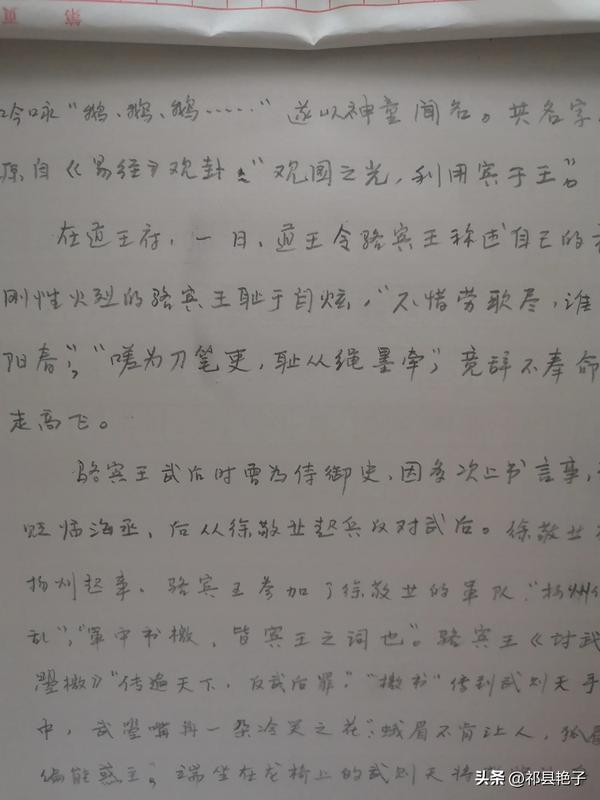 第 页
吟咏“鹅、鹅、鹅……”遂以神童闻名。其名字
原自《易经》观卦：“观国之光，利用宾于王”。
在道王府，一日，道王令骆宾王称述自己的
刚性火烈的骆宾王耻于自炫，“不惜劳歌尽，谁
阳春”，“嗟为刀笔吏，耻从绳墨牵”，竟辞不奉命
走高飞。
骆宾王武后时曾为侍御史，因多次上书言事，
贬临海丞，后从徐敬业起兵反对武后。徐敬业
扬州起事，骆宾王参加了徐敬业的军队，“扬州
乱”，“军中书檄，皆宾王之词也”。骆宾王《讨武
曌檄》“传遍天下，反武后罪”，“檄书”传到武则天手
中，武曌嘴角一朵冷笑之花，“蛾眉不肯让人，狐眉
偏能惑主”，端坐在龙椅上的武则天将
头条 @祁县艳子